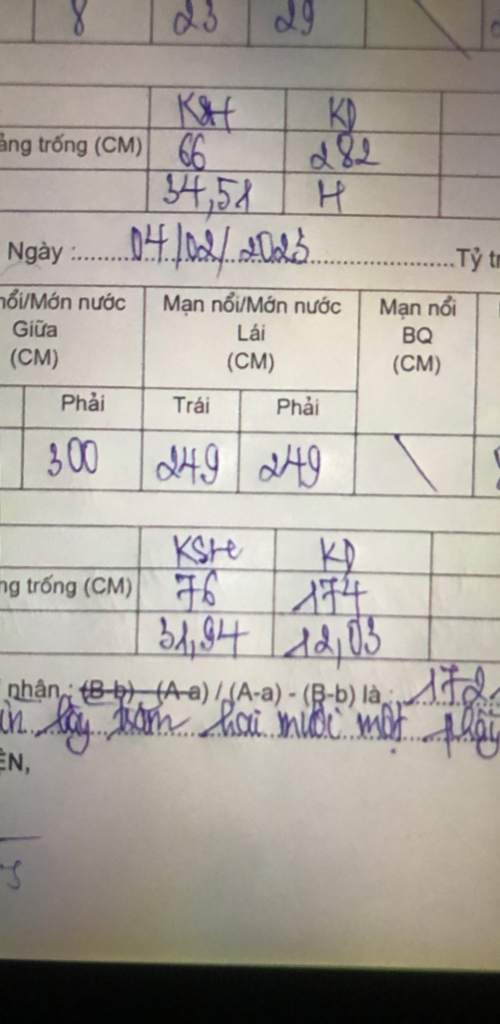 8 23 29
KSH KD
ảng trống (CM) 66 282
34,51 H
Ngày : 04/02/2023 Tỷ tr
nổi/Mớn nước Mạn nổi/Mớn nước Mạn nổi
Giữa Lái BQ
(CM) (CM) (CM)
Phải Trái Phải
300 249 249
KSHe KD
ng trống (CM) 76 174
31,94 12,03
nhân : (B-b) - (A-a) / (A-a) - (B-b) là : 172
bảy trăm hai mươi mốt phẩy
ÊN,